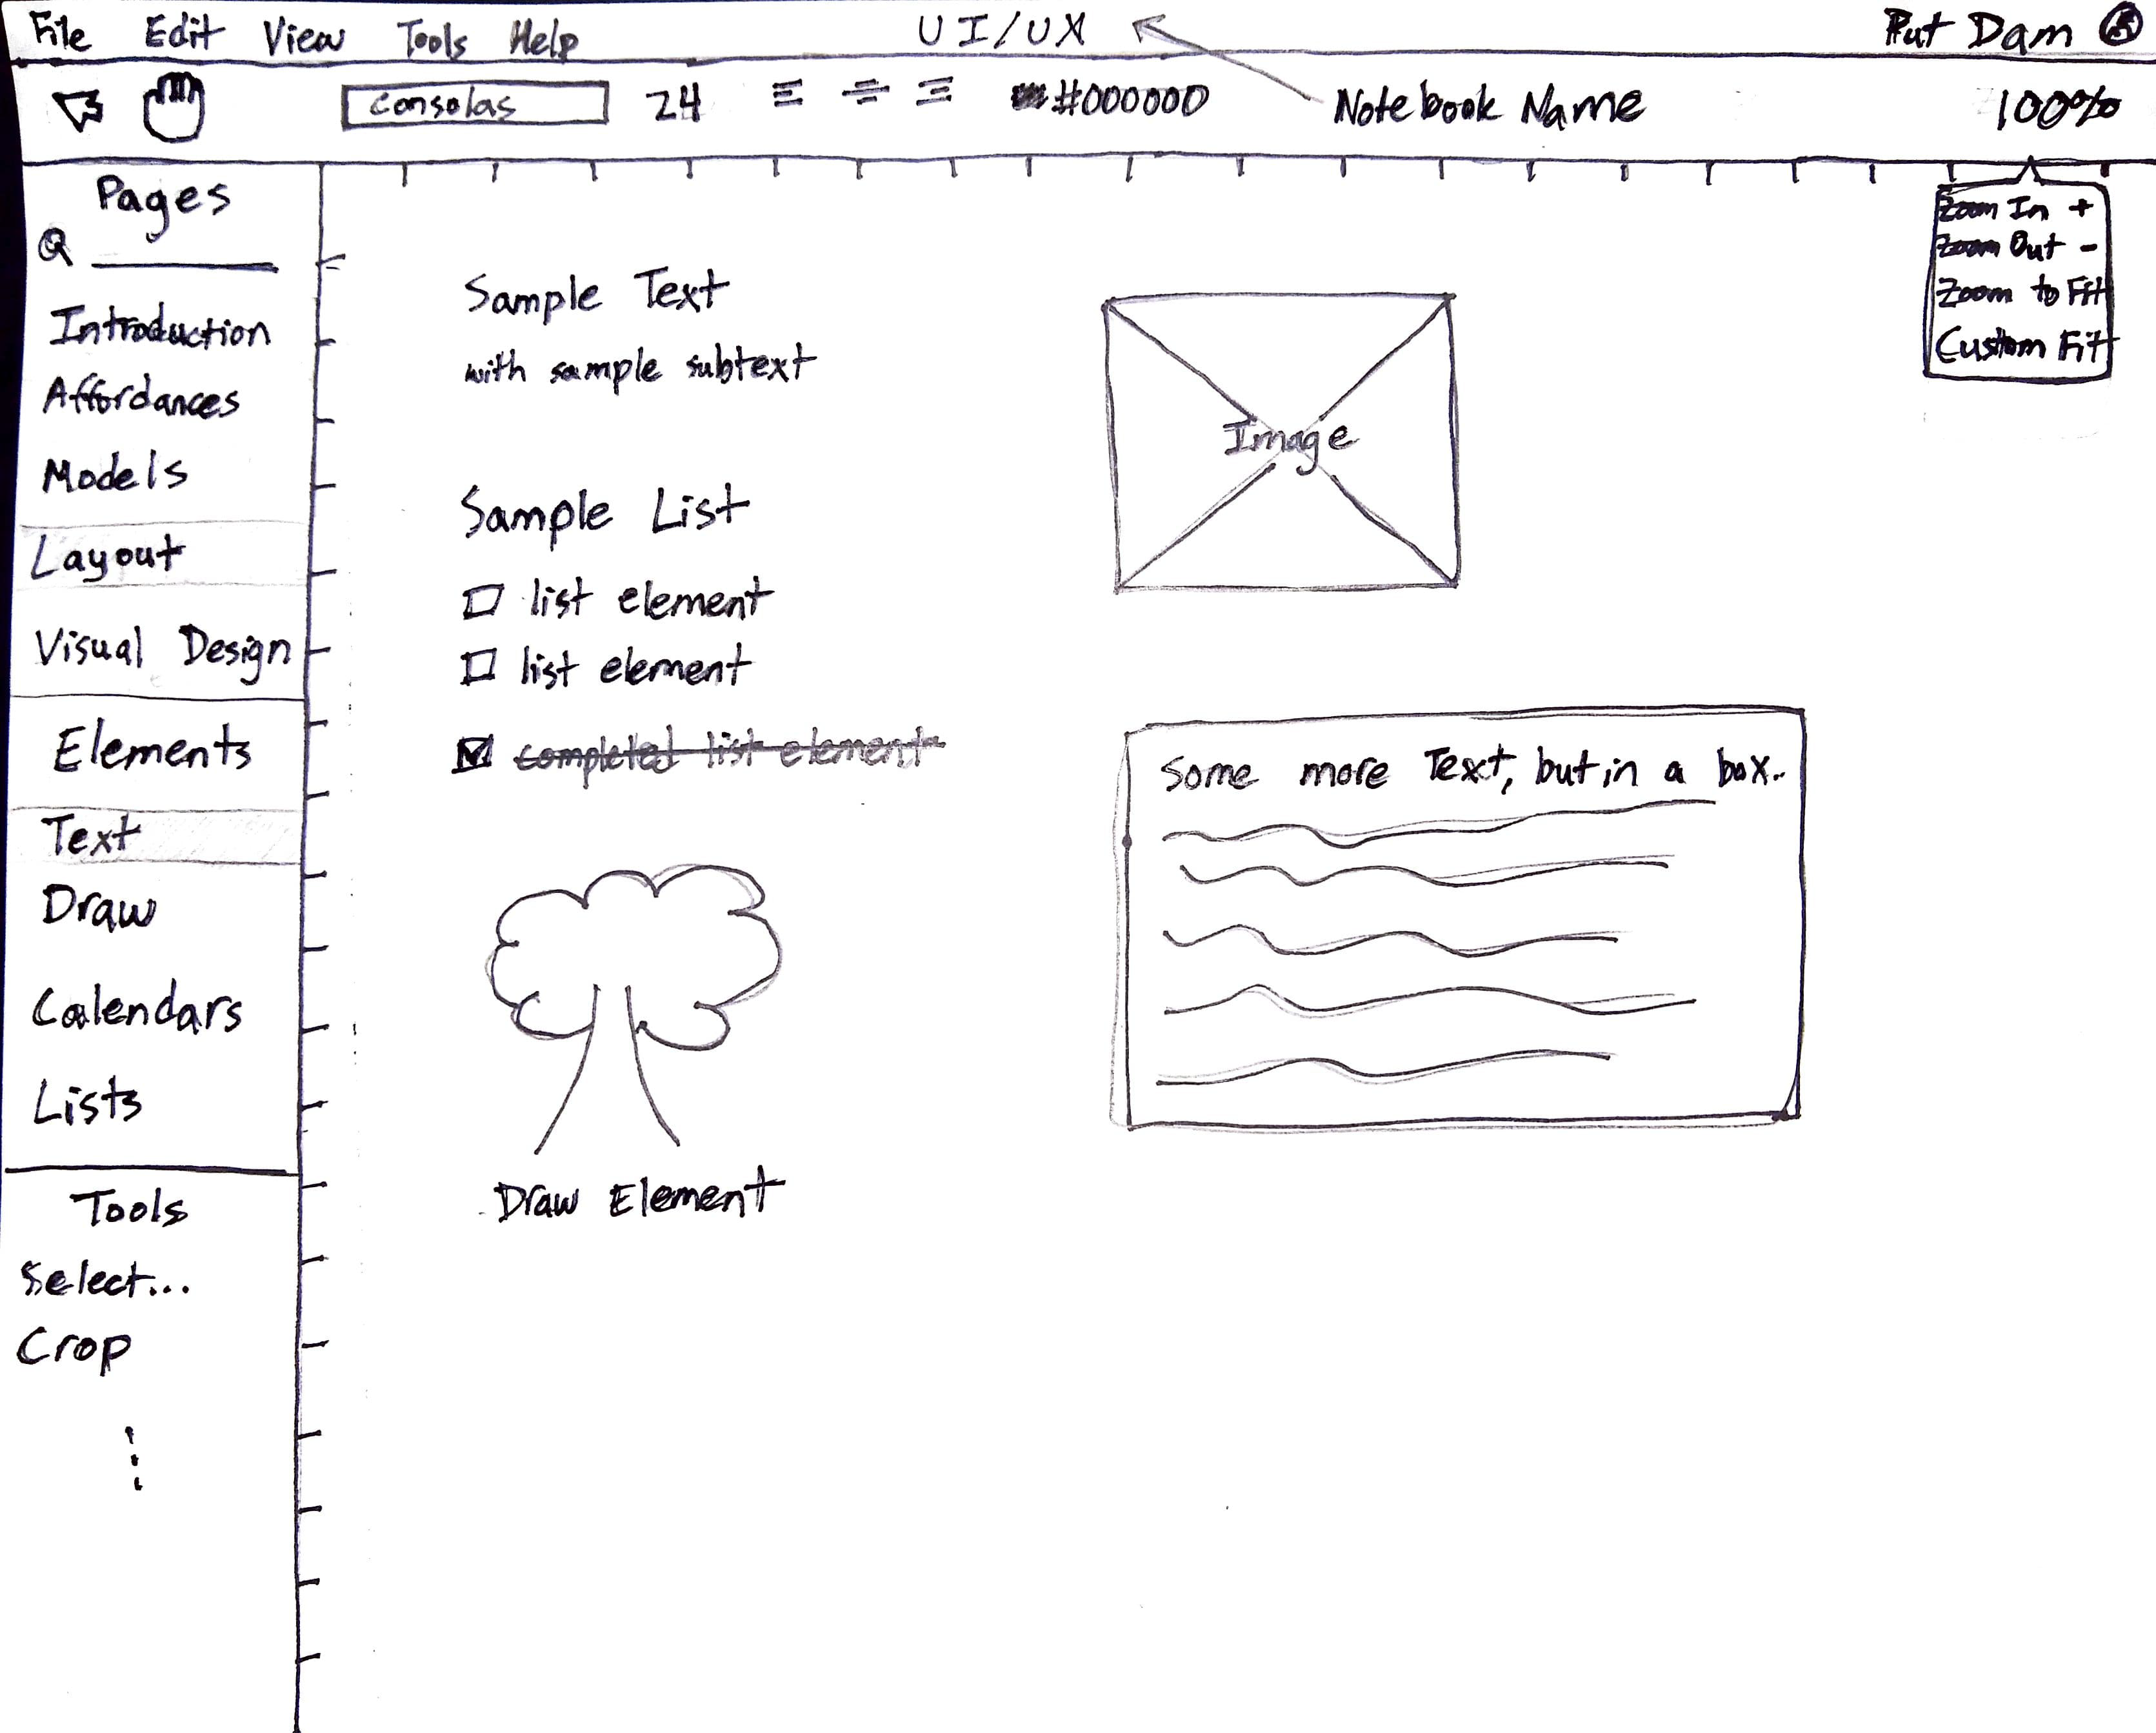 File Edit View Tools Help UI/UX Put Dam
Consolas 24 #000000 Notebook Name 100%
Pages
Zoom In +
Zoom Out -
Zoom to Fit
Custom Fit
Introduction
Affordances
Models
Layout
Visual Design
Elements
Text
Draw
Calendars
Lists
Tools
Select...
Crop
Sample Text
with sample subtext
Sample List
list element
list element
completed list element
Draw Element
Image
Some more Text, but in a box..